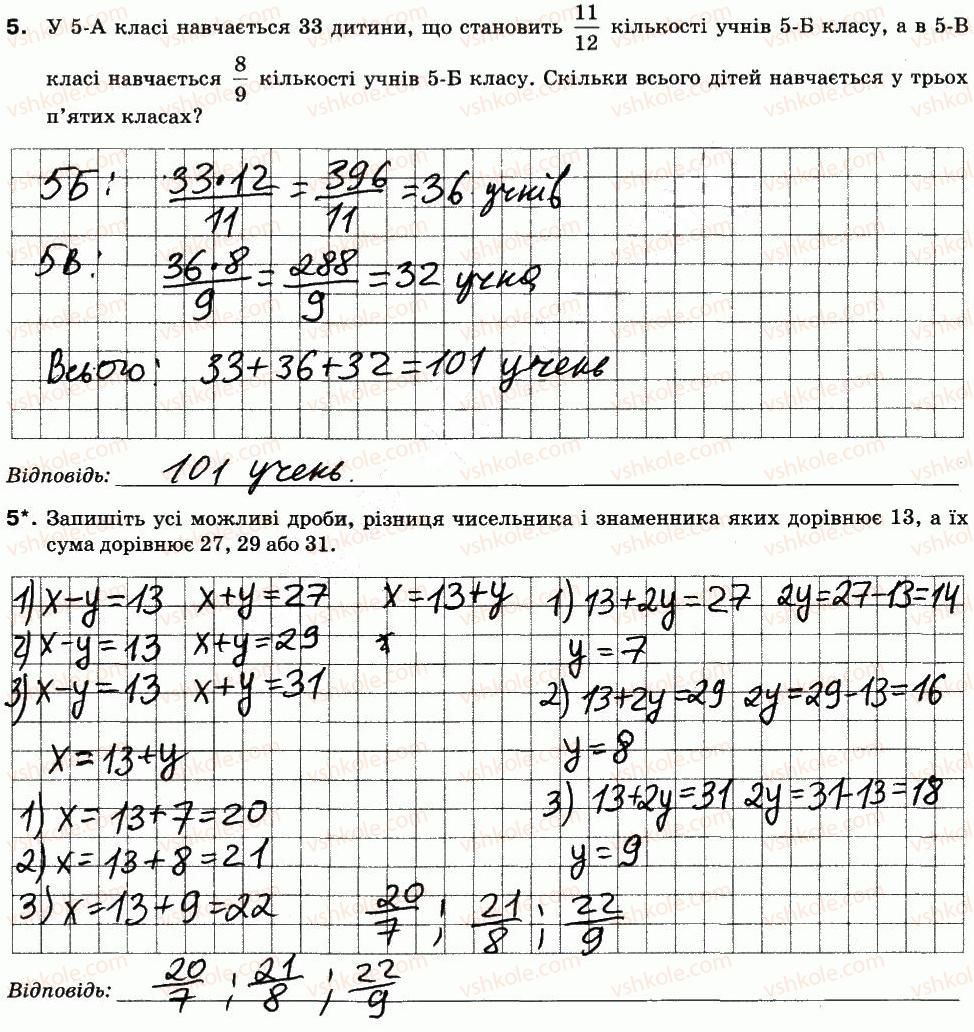 5. У 5-А класі навчається 33 дитини, що становить 11/12 кількості учнів 5-Б класу, а в 5-В
класі навчається 8/9 кількості учнів 5-Б класу. Скільки всього дітей навчається у трьох
п'ятих класах?
5Б: 33·12/11 = 396/11 = 36 учнів
5В: 36·8/9 = 288/9 = 32 учня
Всього: 33+36+32=101 учень
Відповідь: 101 учень.
5*. Запишіть усі можливі дроби, різниця чисельника і знаменника яких дорівнює 13, а їх
сума дорівнює 27, 29 або 31.
1) x-y=13 x+y=27 x=13+y 1) 13+2y=27 2y=27-13=14
2) x-y=13 x+y=29 y=7
3) x-y=13 x+y=31 2) 13+2y=29 2y=29-13=16
x=13+y y=8
1) x=13+7=20 3) 13+2y=31 2y=31-13=18
2) x=13+8=21 y=9
3) x=13+9=22 20/7 ; 21/8 ; 22/9
Відповідь: 20/7 ; 21/8 ; 22/9